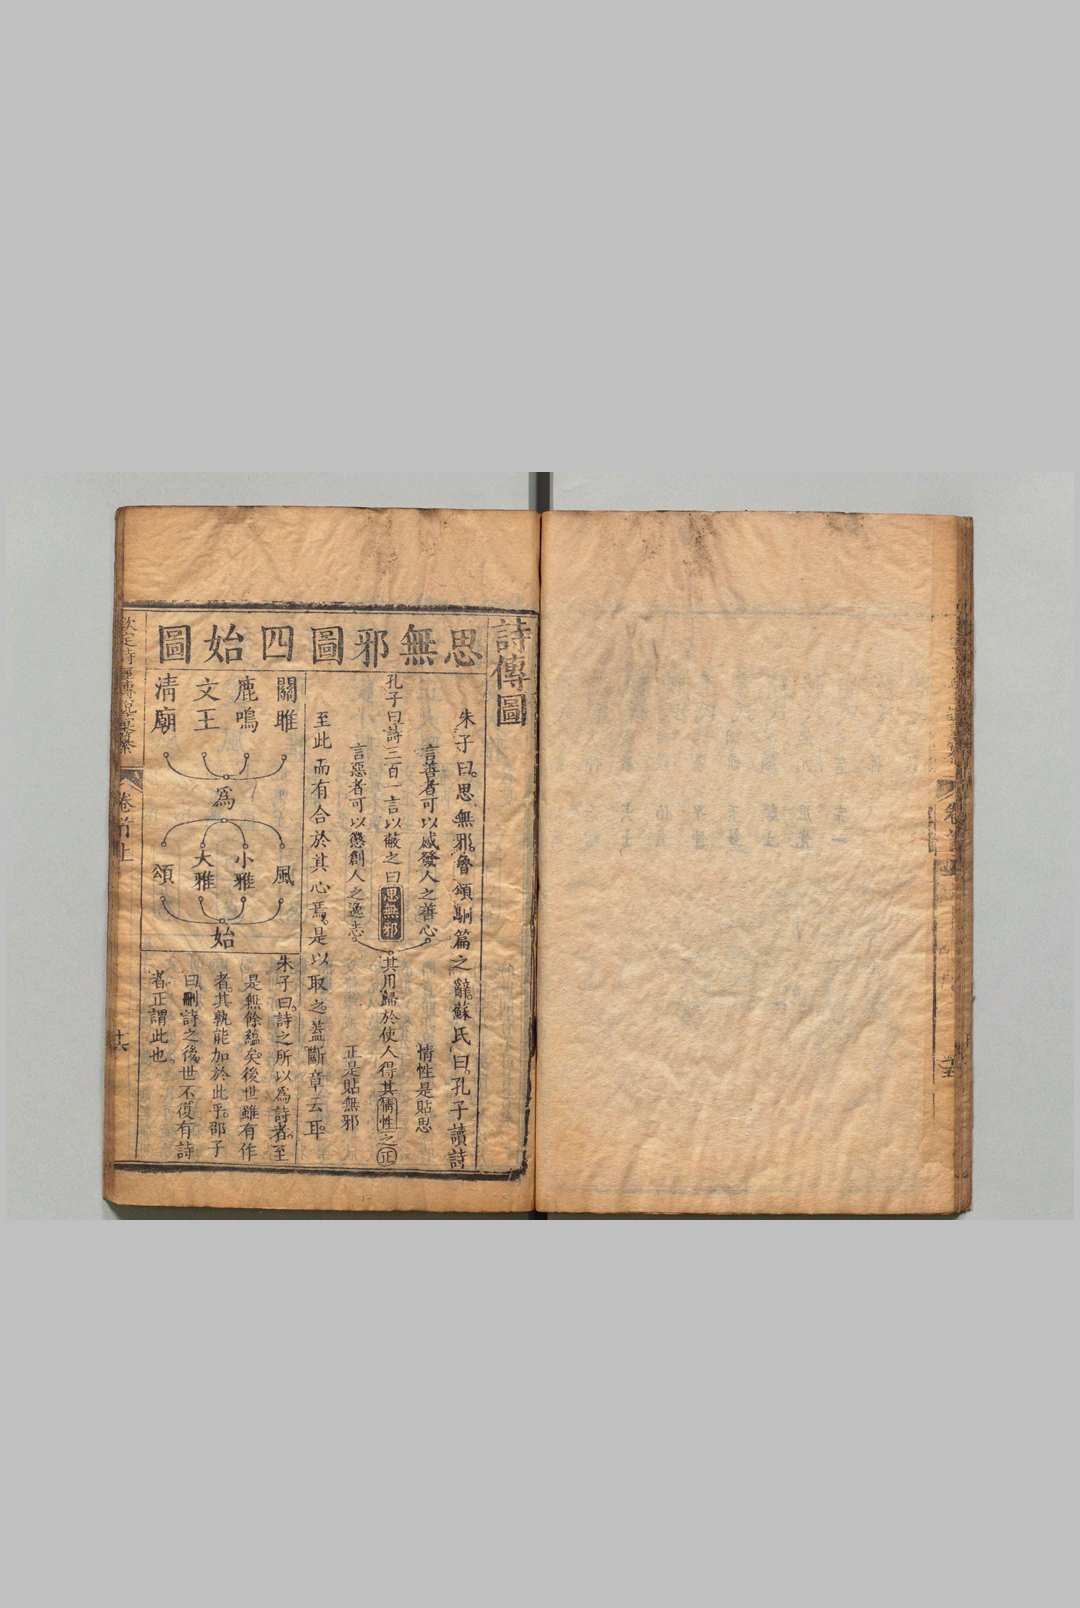 詩傳圖
思無邪圖
四始圖
朱子曰思無邪魯頌駉篇之辭蘇氏曰孔子讀詩
言善者可以感發人之善心
情性是貼思
孔子曰詩三百一言以蔽之曰思無邪
其用歸於使人得其情性之正
言惡者可以懲創人之逸志
正是貼無邪
至此而有合於其心焉是以取之蓋斷章云耳
關雎
鹿鳴
文王
清廟
為
風
小雅
大雅
頌
始
朱子曰詩之所以為詩者至
是無餘蘊矣後世雖有作
者其孰能加於此乎邵子
曰刪詩之後世不復有詩
者正謂此也
卷首上
十六